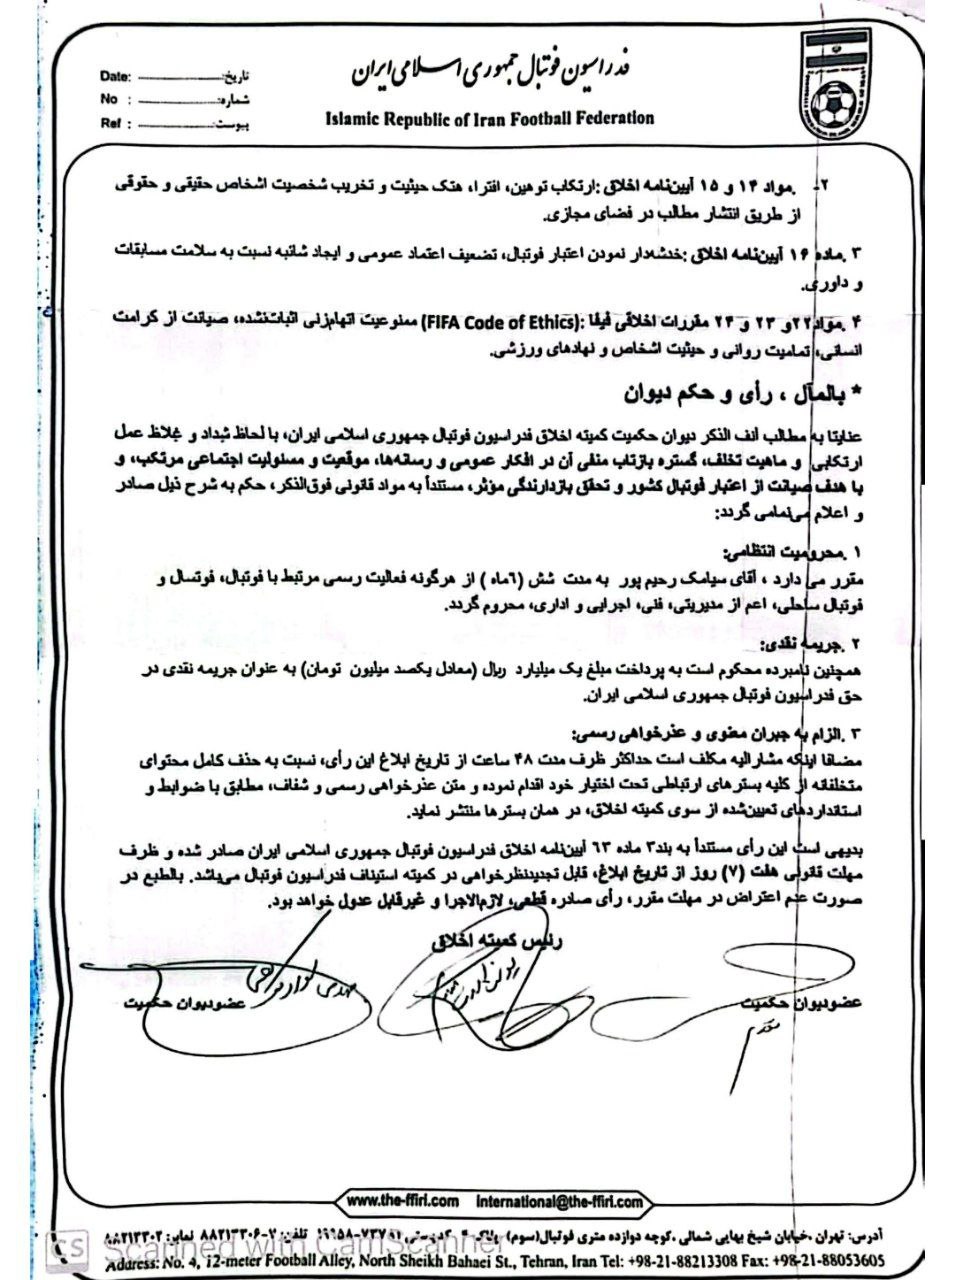 فدراسیون فوتبال جمهوری اسلامی ایران
Islamic Republic of Iran Football Federation
Date: تاریخ:
No : شماره:
Ref : پیوست:
۲- .مواد ۱۴ و ۱۵ آیین‌نامه اخلاق :ارتکاب توهین، افتراء، هتک حیثیت و تخریب شخصیت اشخاص حقیقی و حقوقی
از طریق انتشار مطالب در فضای مجازی.
۳ .ماده ۱۶ آیین‌نامه اخلاق :خدشه‌دار نمودن اعتبار فوتبال، تضعیف اعتماد عمومی و ایجاد شائبه نسبت به سلامت مسابقات
و داوری.
۴ .مواد۲۲و ۲۳ و ۲۴ مقررات اخلاقی فیفا :(FIFA Code of Ethics) ممنوعیت اتهام‌زنی اثبات‌نشده، صیانت از کرامت
انسانی، تمامیت روانی و حیثیت اشخاص و نهادهای ورزشی.
* بالمآل ، رأی و حکم دیوان
عنایتا به مطالب آنف الذکر دیوان حکمیت کمیته اخلاق فدراسیون فوتبال جمهوری اسلامی ایران، با لحاظ شداد و غلاظ عمل
ارتکابی و ماهیت تخلف، گستره بازتاب منفی آن در افکار عمومی و رسانه‌ها، موقعیت و مسئولیت اجتماعی مرتکب، و
با هدف صیانت از اعتبار فوتبال کشور و تحقق بازدارندگی مؤثر، مستنداً به مواد قانونی فوق‌الذکر، حکم به شرح ذیل صادر
و اعلام می‌نمامی گردد:
۱ .محرومیت انتظامی:
مقرر می دارد ، آقای سیامک رحیم پور به مدت شش (۶ماه ) از هرگونه فعالیت رسمی مرتبط با فوتبال، فوتسال و
فوتبال ساحلی، اعم از مدیریتی، فنی، اجرایی و اداری، محروم گردد.
۲ .جریمه نقدی:
همچنین نامبرده محکوم است به پرداخت مبلغ یک میلیارد ریال (معادل یکصد میلیون تومان) به عنوان جریمه نقدی در
حق فدراسیون فوتبال جمهوری اسلامی ایران.
۳ .الزام به جبران معنوی و عذرخواهی رسمی:
مضافا اینکه مشارالیه مکلف است حداکثر ظرف مدت ۴۸ ساعت از تاریخ ابلاغ این رأی، نسبت به حذف کامل محتوای
متخلفانه از کلیه بسترهای ارتباطی تحت اختیار خود اقدام نموده و متن عذرخواهی رسمی و شفاف، مطابق با ضوابط و
استانداردهای تعیین‌شده از سوی کمیته اخلاق، در همان بسترها منتشر نماید.
بدیهی است این رأی مستنداً به بند۳ ماده ۶۳ آیین‌نامه اخلاق فدراسیون فوتبال جمهوری اسلامی ایران صادر شده و ظرف
مهلت قانونی هفت (۷) روز از تاریخ ابلاغ، قابل تجدیدنظرخواهی در کمیته استیناف فدراسیون فوتبال می‌باشد. بالطبع در
صورت عدم اعتراض در مهلت مقرر، رأی صادره قطعی، لازم‌الاجرا و غیرقابل عدول خواهد بود.
رئیس کمیته اخلاق
عضودیوان حکمیت
عضودیوان حکمیت
www.the-ffiri.com International@the-ffiri.com
آدرس: تهران ،خیابان شیخ بهایی شمالی ،کوچه دوازده متری فوتبال(سوم) پلاک ۴ کدپستی ۷۳۷۹۱-۱۹۹۵۸ تلفن: ۷-۸۸۲۱۳۳۰۶ نمابر: ۸۸۲۱۳۳۰۲
Address: No. 4, 12-meter Football Alley, North Sheikh Bahaei St., Tehran, Iran Tel: +98-21-88213308 Fax: +98-21-88053605
CS Scanned with CamScanner